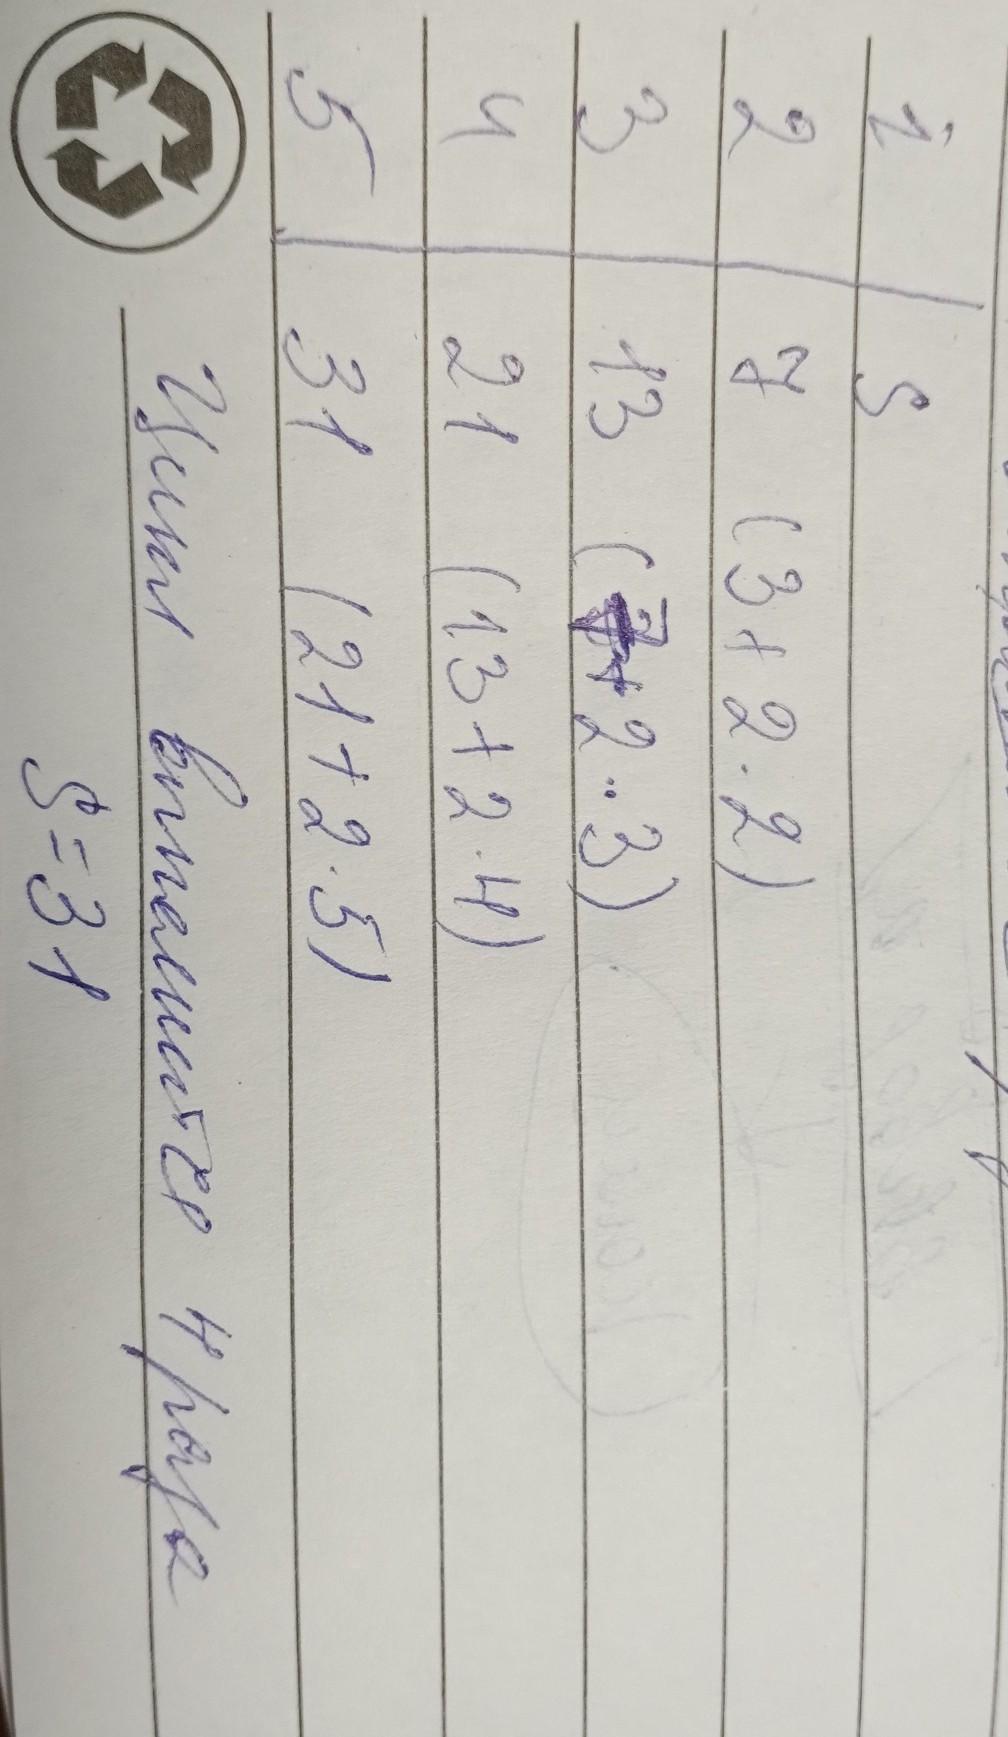 i S
2 7 (3+2·2)
3 13 (7+2·3)
4 21 (13+2·4)
5 31 (21+2·5)
Цикл выполнится 4 раза
S=31